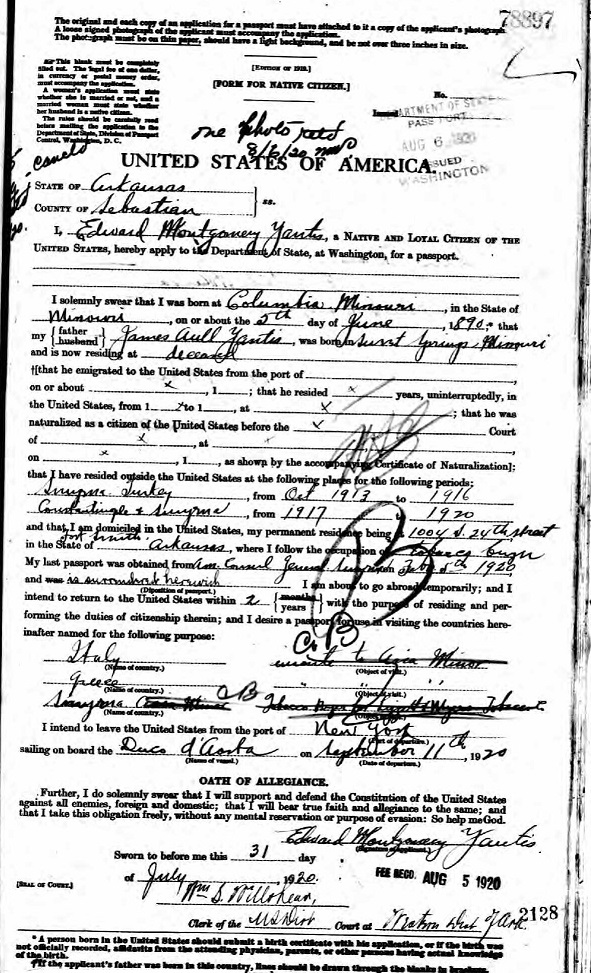 78897
The original and each copy of an application for a passport must have attached to it a copy of the applicant's photograph.
A loose signed photograph of the applicant must accompany the application.
The photograph must be on thin paper, should have a light background, and be not over three inches in size.
This blank must be completely
filled out. The legal fee of one dollar,
in currency or postal money order,
must accompany the application.
A woman's application must state
whether she is married or not, and a
married woman must state whether
her husband is a native citizen.
The rules should be carefully read
before mailing the application to the
Department of State, Division of Passport
Control, Washington, D. C.
[EDITION OF 1919.]
[FORM FOR NATIVE CITIZEN.]
No.
Issued
DEPARTMENT OF STATE
PASSPORT
AUG 6 1920
ISSUED
WASHINGTON
one photo
8/6/20
UNITED STATES OF AMERICA.
STATE OF Arkansas
COUNTY OF Sebastian
ss.
I, Edward Montgomery Yantis, a NATIVE AND LOYAL CITIZEN OF THE
UNITED STATES, hereby apply to the Department of State, at Washington, for a passport.
I solemnly swear that I was born at Columbia Missouri, in the State of
Missouri, on or about the 5th day of June, 1890; that
my {father husband} James Aull Yantis, was born in Sweet Springs Missouri
and is now residing at deceased
†[that he emigrated to the United States from the port of
on or about x, 1; that he resided x years, uninterruptedly, in
the United States, from 1 x to 1, at x; that he was
naturalized as a citizen of the United States before the x Court
of x, at
on x, 1, as shown by the accompanying Certificate of Naturalization];
that I have resided outside the United States at the following places for the following periods:
Smyrna Turkey, from Oct 1913 to 1916
Constantinple & Smyrna, from 1917 to 1920
and that I am domiciled in the United States, my permanent residence being at 1004 S. 24th street
Fort Smith
in the State of Arkansas, where I follow the occupation of tobacco buyer
My last passport was obtained from Am. Consul General Smyrna on Feby 5th 1920
and was is surrendered herewith
(Disposition of passport.)
I am about to go abroad temporarily; and I
intend to return to the United States within 2 {months years} with the purpose of residing and per-
forming the duties of citizenship therein; and I desire a passport for use in visiting the countries here-
inafter named for the following purpose:
CB
Italy enroute to Asia Minor
(Name of country.) (Object of visit.)
Greece " "
(Name of country.) (Object of visit.)
Smyrna Asia Minor CB Tobacco Buyer for Liggett & Myers Tobacco
(Name of country.) (Object of visit.)
I intend to leave the United States from the port of New York
(Port of departure.)
sailing on board the Duca d'Aosta on September 11th, 1920
(Name of vessel.) (Date of departure.)
OATH OF ALLEGIANCE.
Further, I do solemnly swear that I will support and defend the Constitution of the United States
against all enemies, foreign and domestic; that I will bear true faith and allegiance to the same; and
that I take this obligation freely, without any mental reservation or purpose of evasion: So help me God.
Edward Montgomery Yantis
(Signature of applicant.)
Sworn to before me this 31 day
of July 1920.
FEE RECD. AUG 5 1920
[SEAL OF COURT.]
Clerk of the US Dist Court at Western Dist of Ark.
2128
* A person born in the United States should submit a birth certificate with his application, or if the birth was
not officially recorded, affidavits from the attending physician, parents, or other persons having actual knowledge
of the birth.
† If the applicant's father was born in this country, lines should be drawn through the blanks in brackets.